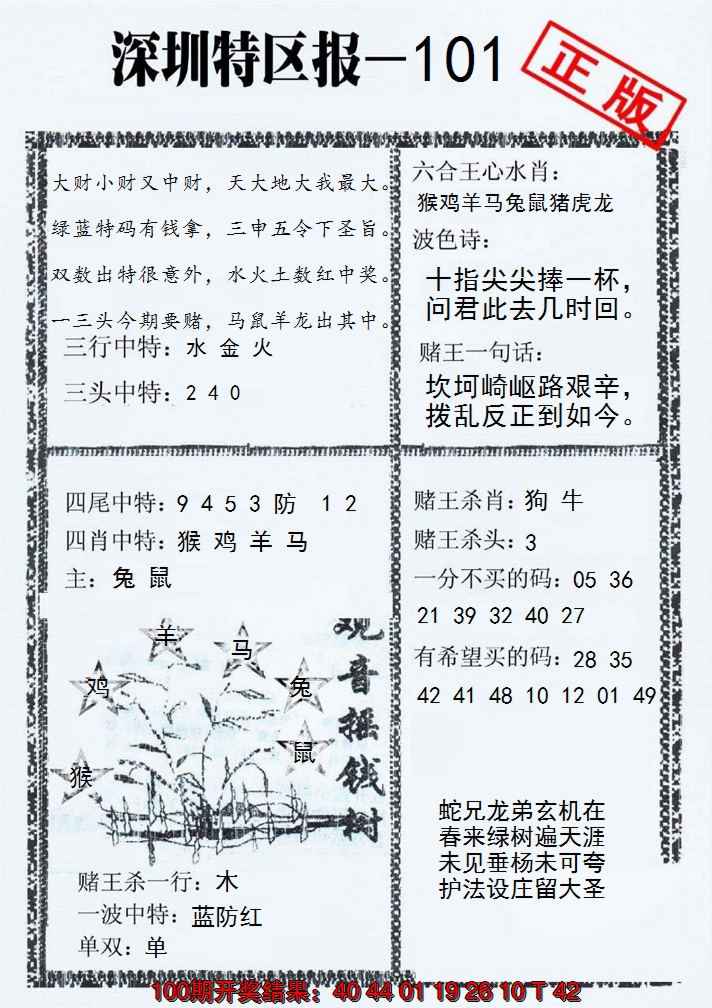 深圳特区报-101
正版
大财小财又中财，天大地大我最大。
绿蓝特码有钱拿，三申五令下圣旨。
双数出特很意外，水火土数红中奖。
一三头今期要赌，马鼠羊龙出其中。
三行中特：水 金 火
三头中特：2 4 0
六合王心水肖：
猴鸡羊马兔鼠猪虎龙
波色诗：
十指尖尖捧一杯，
问君此去几时回。
赌王一句话：
坎坷崎岖路艰辛，
拨乱反正到如今。
四尾中特：9 4 5 3 防 1 2
四肖中特：猴 鸡 羊 马
主：兔 鼠
羊
马
鸡
兔
鼠
猴
观音摇钱树
赌王杀一行：木
一波中特：蓝防红
单双：单
赌王杀肖：狗 牛
赌王杀头：3
一分不买的码：05 36
21 39 32 40 27
有希望买的码：28 35
42 41 48 10 12 01 49
蛇兄龙弟玄机在
春来绿树遍天涯
未见垂杨未可夸
护法设庄留大圣
100期开奖结果：40 44 01 19 26 10 T 42